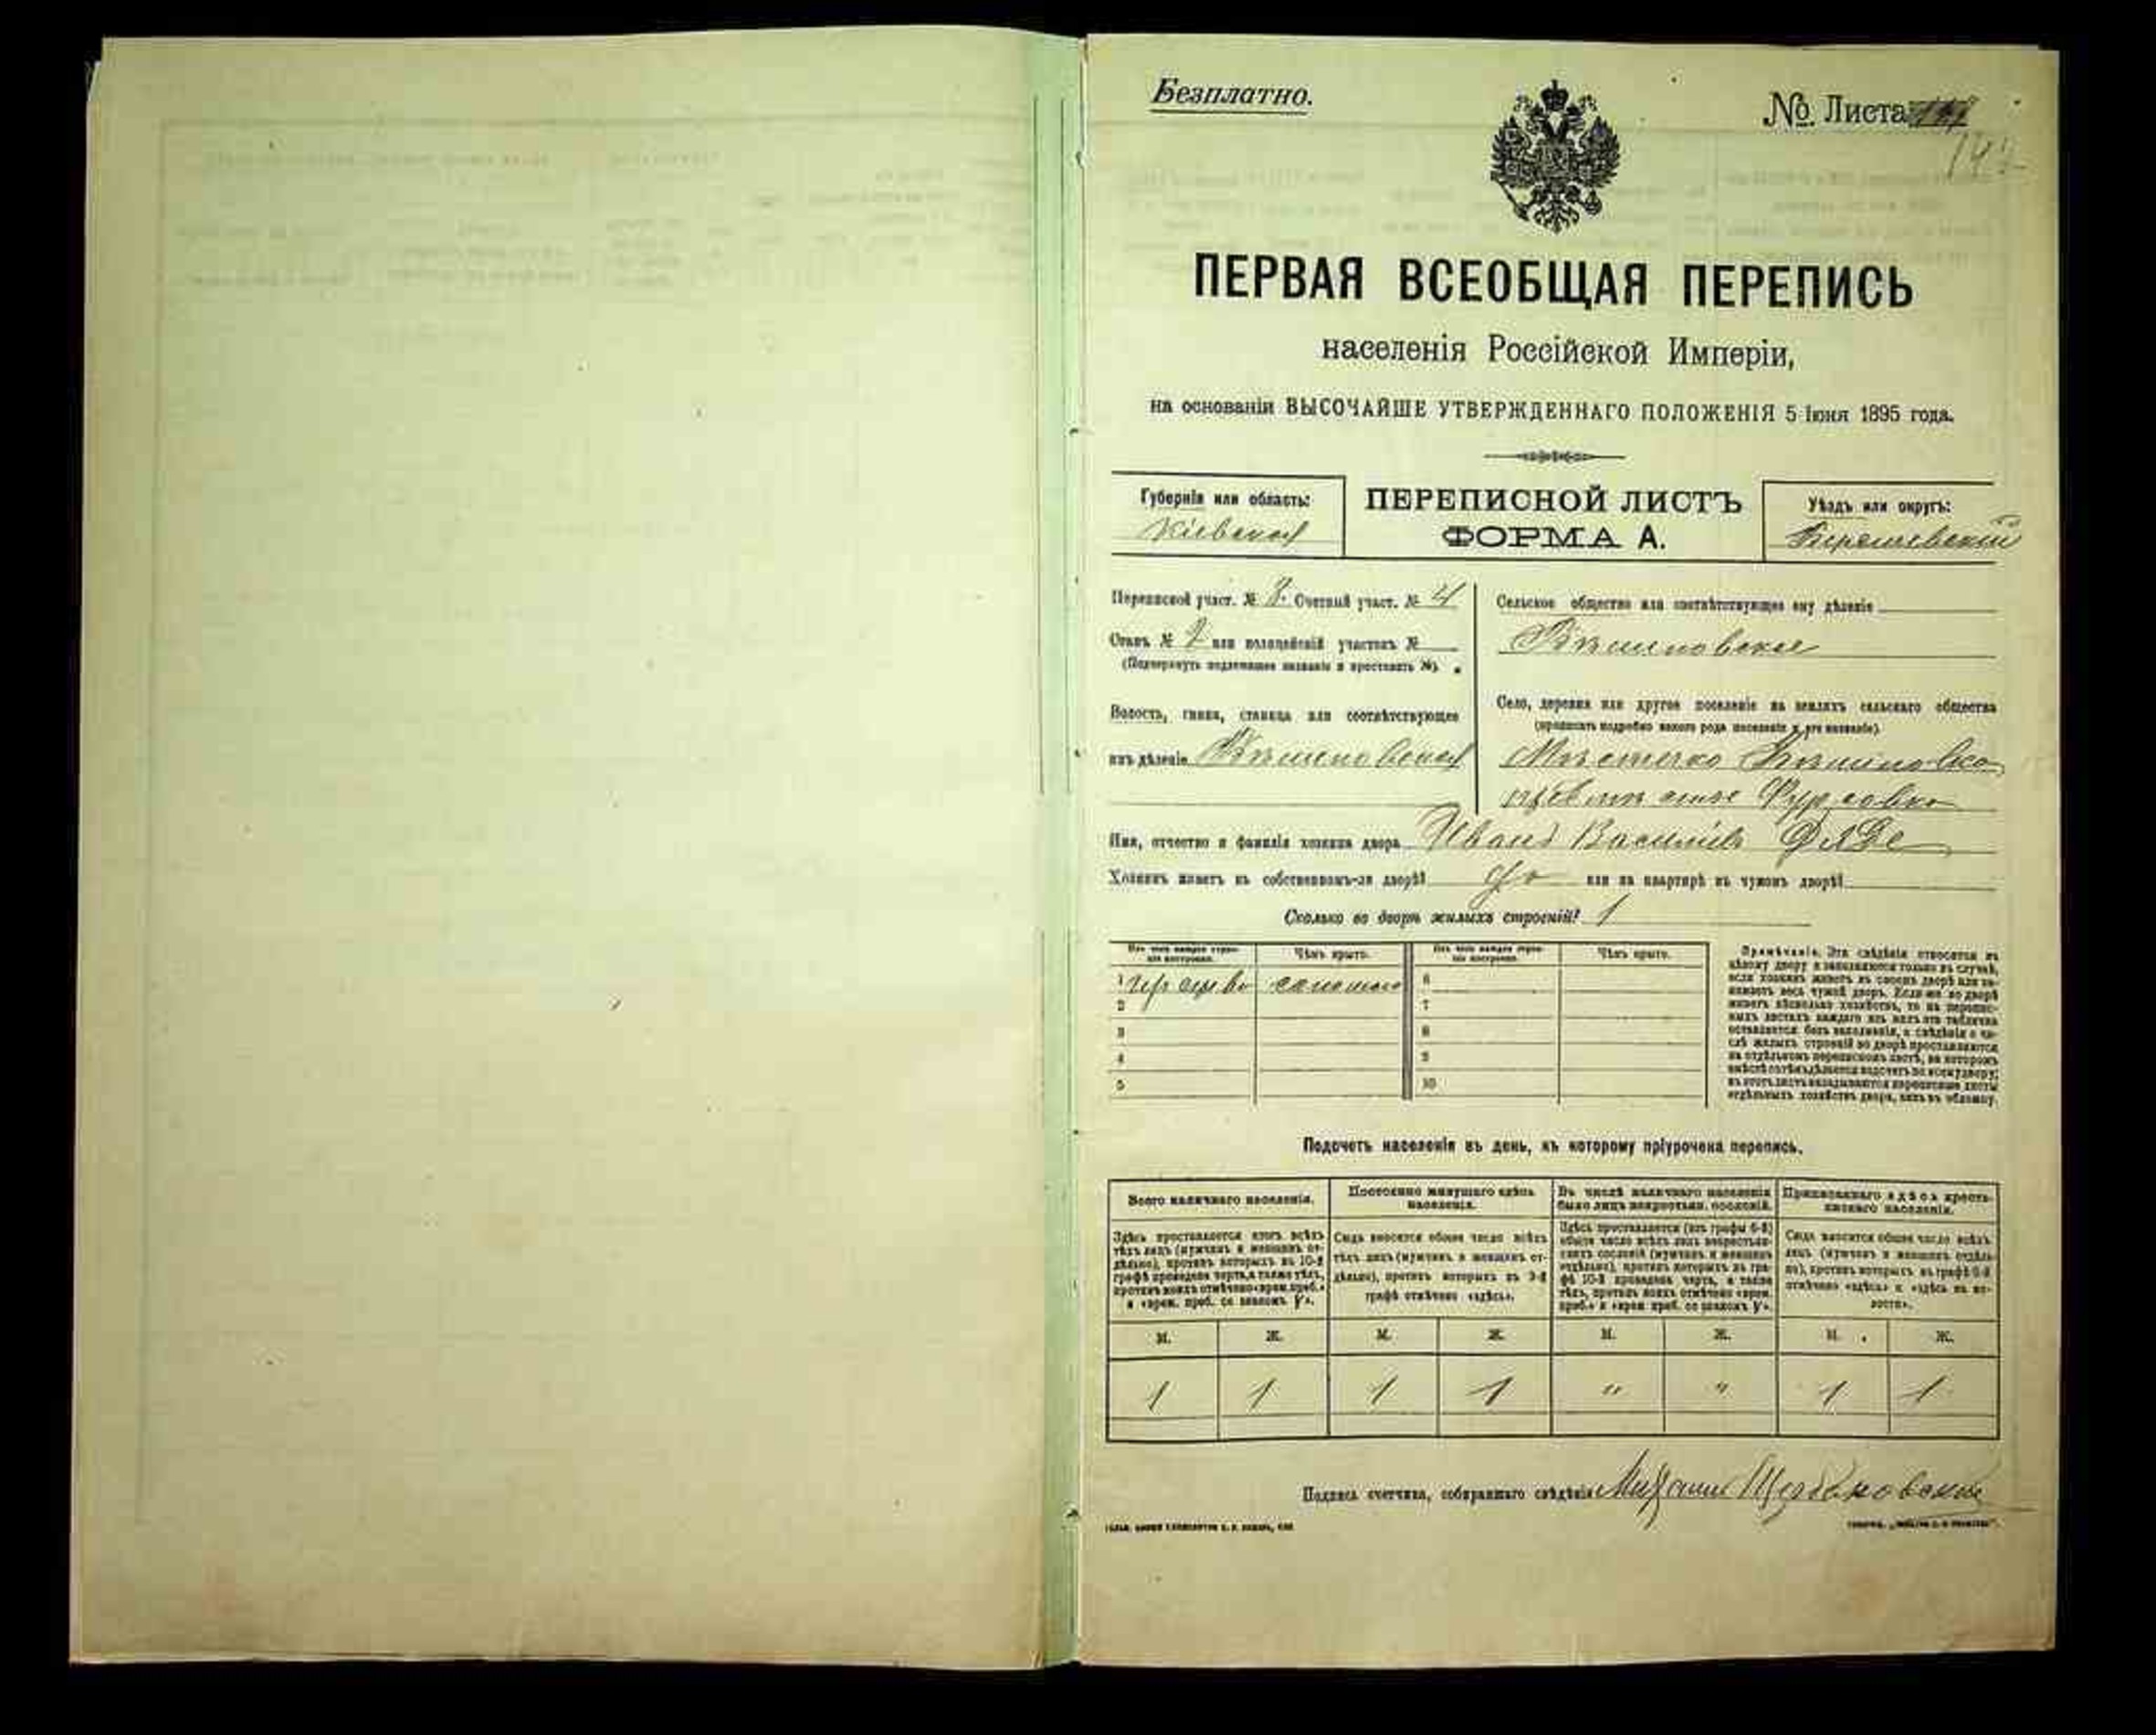 Безплатно.
№ Листа
147
ПЕРВАЯ ВСЕОБЩАЯ ПЕРЕПИСЬ
населенія Россійской Имперіи,
на основаніи ВЫСОЧАЙШЕ УТВЕРЖДЕННАГО ПОЛОЖЕНІЯ 5 Іюня 1895 года.
Губернія или область:
Кіевская
ПЕРЕПИСНОЙ ЛИСТЪ
ФОРМА А.
Уѣздъ или округъ:
Переписной участ. № Счетный участ. № 4
Станъ № 2 или полицейскій участокъ №
(Подчеркнуть подлежащее названіе и проставить №).
Волость, гмина, станица или соотвѣтствующее
имъ дѣленіе
Сельское общество или соотвѣтствующее ему дѣленіе
Село, деревня или другое поселеніе на земляхъ сельскаго общества
(прописать подробно какого рода поселеніе и его названіе).
Мѣстечко
Фурсовка
Имя, отчество и фамилія хозяина двора Иванъ Васильевъ
Хозяинъ живетъ въ собственномъ-ли дворѣ? да или на квартирѣ въ чужомъ дворѣ?
Сколько во дворѣ жилыхъ строеній? 1
Изъ чего каждое строеніе построено. Чѣмъ крыто. Изъ чего каждое строеніе построено. Чѣмъ крыто.
1 соломою 6
2 7
3 8
4 9
5 10
Примѣчаніе. Эти свѣдѣнія относятся къ
цѣлому двору и заполняются только въ случаѣ,
если хозяинъ живетъ въ своемъ дворѣ или занимаетъ
весь чужой дворъ. Если же во дворѣ
живетъ нѣсколько хозяйствъ, то на переписныхъ
листахъ каждаго изъ нихъ эта табличка
оставляется безъ заполненія, а свѣдѣнія о числѣ
жилыхъ строеній во дворѣ проставляются
на отдѣльномъ переписномъ листѣ, на которомъ
вмѣстѣ съ тѣмъ дѣлается подсчетъ по всему двору;
въ этотъ листъ вкладываются переписные листы
отдѣльныхъ хозяйствъ двора, какъ въ обложку.
Подсчетъ населенія въ день, къ которому пріурочена перепись.
Всего наличнаго населенія.
Здѣсь проставляется итогъ всѣхъ
тѣхъ лицъ (мужчинъ и женщинъ отдѣльно),
противъ которыхъ въ 10-й
графѣ проведена черта, а также тѣхъ,
противъ коихъ отмѣчено «врем. преб.»
и «врем. преб. со знакомъ V».
Постоянно живущаго здѣсь
населенія.
Сюда вносится общее число всѣхъ
тѣхъ лицъ (мужчинъ и женщинъ отдѣльно),
противъ которыхъ въ 9-й
графѣ отмѣчено «здѣсь».
Въ числѣ наличнаго населенія
было лицъ некрестьян. сословій.
Здѣсь проставляется (изъ графы 6-й)
общее число всѣхъ лицъ некрестьянскихъ
сословій (мужчинъ и женщинъ
отдѣльно), противъ которыхъ въ графѣ
10-й проведена черта, а также
тѣхъ, противъ коихъ отмѣчено «врем.
преб.» и «врем. преб. со знакомъ V».
Приписаннаго здѣсь крестьянскаго
населенія.
Сюда вносится общее число всѣхъ
лицъ (мужчинъ и женщинъ отдѣльно),
противъ которыхъ въ графѣ 8-й
отмѣчено «здѣсь» и «здѣсь въ волости».
М. Ж. М. Ж. М. Ж. М. Ж.
1 1 1 1 " " 1 1
Подпись счетчика, собиравшаго свѣдѣнія Михаилъ